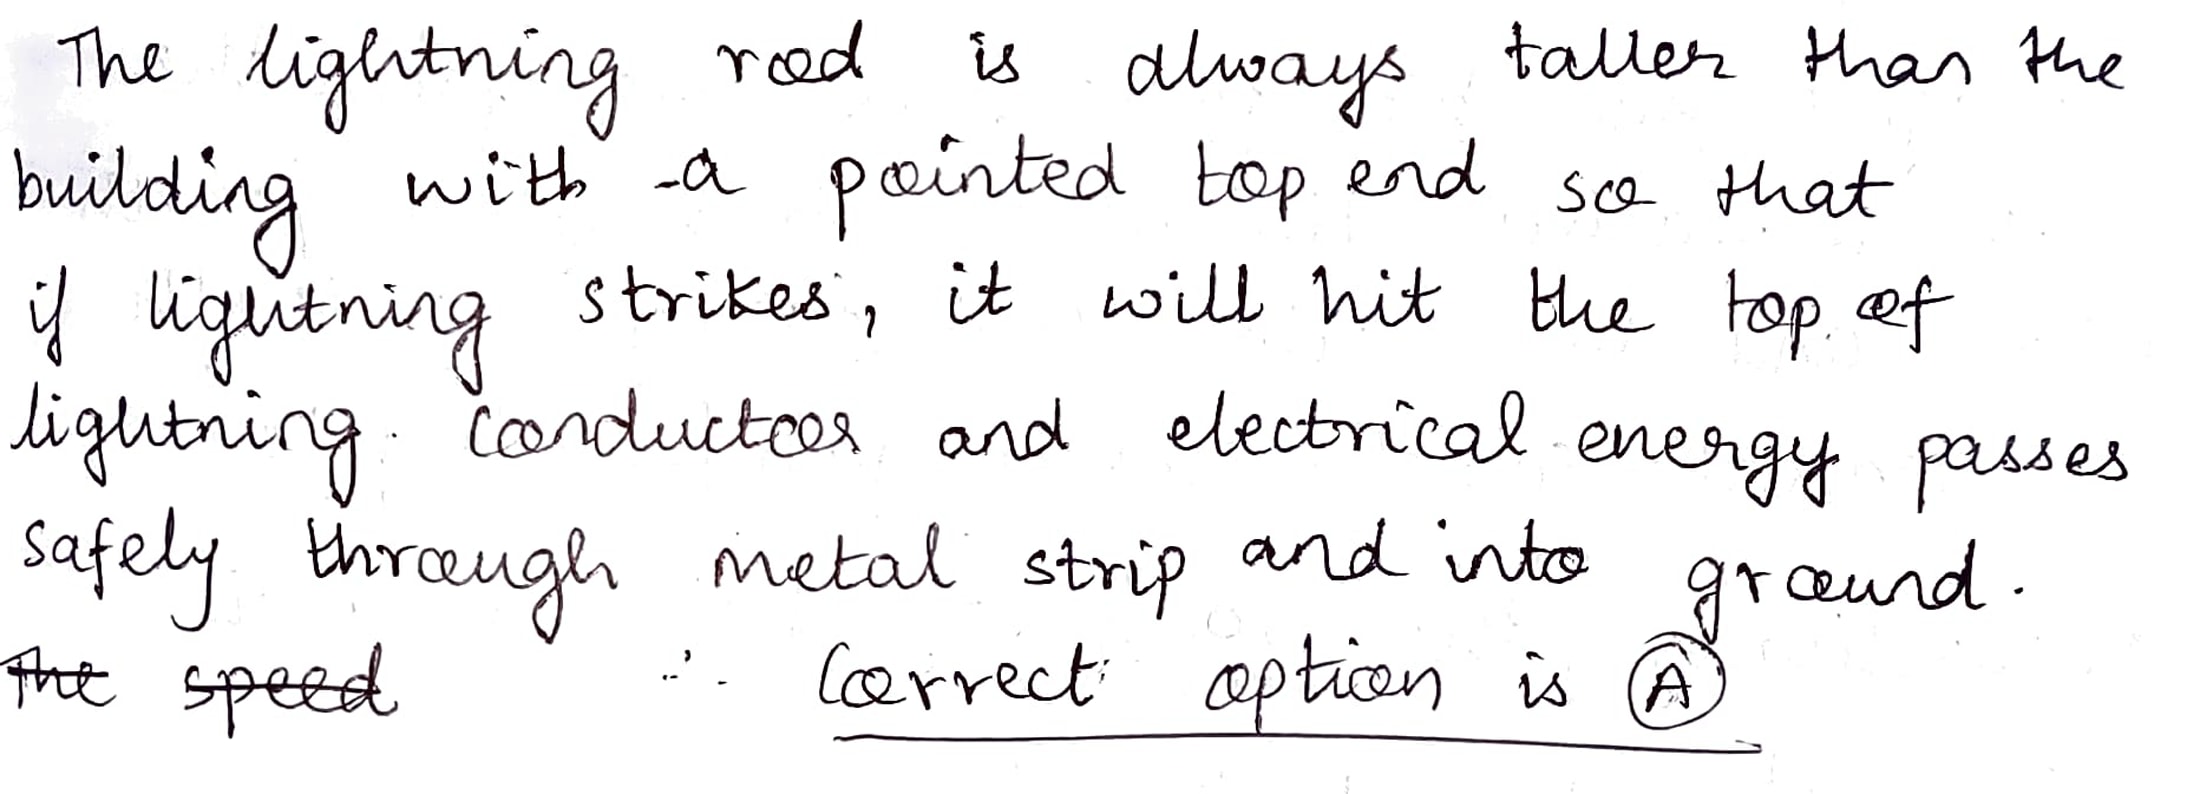 The lightning rod is always taller than the
building with a pointed top end so that
if lightning strikes, it will hit the top of
lightning conductor and electrical energy passes
safely through metal strip and into ground.
The speed ∴ Correct option is A